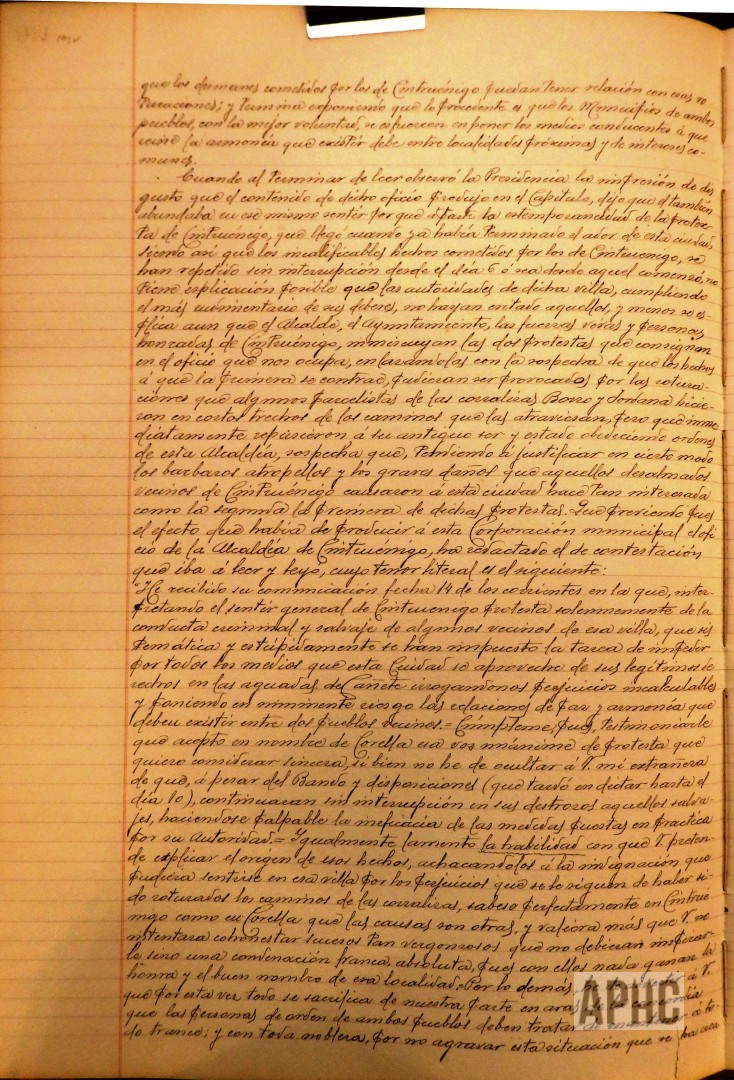 que los desmanes cometidos por los de Cintruénigo puedan tener relación con esas ro
turaciones; y termina exponiendo que lo procedente es que los Municipios de ambos
pueblos, con la mejor voluntad, se esfuercen en poner los medios conducentes á que
reine la armonía que existir debe entre localidades próximas y de intereses co-
munes.
Cuando al terminar de leer observó la Presidencia la impresión de dis
gusto que el contenido de dicho oficio produjo en el Capítulo, dijo que él también
abundaba en ese mismo sentir por que aparte la extemporaneidad de la protes-
ta de Cintruénigo, que llegó cuando ya había terminado el ador de esta ciudad,
siendo así que los incalificables hechos cometidos por los de Cintruénigo, se
han repetido sin interrupción desde el día 6 ó sea desde aquel comenzó, no
tiene explicación posible que las autoridades de dicha villa, cumpliendo
el más rudimentario de sus deberes, no hayan evitado aquellos, y menos se es-
plica aun que el Alcalde, el Ayuntamiento, las fuerzas vivas y personas
honradas de Cintruénigo, inmiscuyan las dos protestas que consignan
en el oficio que nos ocupa, enlazandolas con la sospecha de que los hechos
á que la primera se contrae, pudieran ser provocados por las rotura-
ciones que algunos parcelistas de las corralizas Borro y Sordana hicie-
ron en cortos trechos de los caminos que las atraviesan, pero que inme
diatamente repusieron á su antiguo ser y estado obedeciendo ordenes
de esta Alcaldía, sospecha que, tendiendo á justificar en cierto modo
los barbaros atropellos y los graves daños que aquellos desalmados
vecinos de Cintruénigo causaron á esta ciudad hace tan interesada
como la segunda la primera de dichas protestas. Que previendo pues
el efecto que había de producir á esta Corporación municipal el ofi
cio de la Alcaldía de Cintruénigo, ha redactado el de contestación
que iba á leer y leyó, cuyo tenor literal es el siguiente:
"He recibido su comunicación fecha 14 de los corrientes en la que, inter-
pretando el sentir general de Cintruenigo protesta solemnemente de la
conducta criminal y salvaje de algunos vecinos de esa villa, que sis
temática y estúpidamente se han impuesto la tarea de impedir
por todos los medios que esta Ciudad se aproveche de sus legítimos de
rechos en las aguadas de Cañete irrogandonos perjuicios incalculables
y poniendo en inminente riesgo las relaciones de paz y armonía que
deben existir entre dos pueblos vecinos.= Cúmpleme, pues, testimoniarle
que acepto en nombre de Corella esa voz unánime de protesta que
quiero considerar sincera, si bien no he de ocultar á V. mi extrañeza
de que, á pesar del Bando y disposiciones (que tardó en dictar hasta el
día 10), continuaran sin interrupción en sus destrozos aquellos salva-
jes, haciendose palpable la ineficacia de las medidas puestas en practica
por su Autoridad.= Igualmente lamento la habilidad con que V. preten-
de explicar el origen de esos hechos, achacandolos á la indignación que
pudiera sentirse en esa villa por los perjuicios que se le siguen de haber si
do roturados los caminos de las corralizas, sabese perfectamente en Cintrué
nigo como en Corella que las causas son otras, y valiera más que V. no
intentara cohonestar sucesos tan vergonzosos que no debieran
sino una condenación franca, absoluta, pues con ellos nada ganan la
honra y el buen nombre de esa localidad.= Por lo demás, á V.
que por esta vez todo se sacrifica de nuestra parte en aras de la concordia
que las personas de orden de ambos pueblos deben tratar de mantener á to-
do trance; y con toda nobleza, por no agravar esta situación que se ha crea
APHC